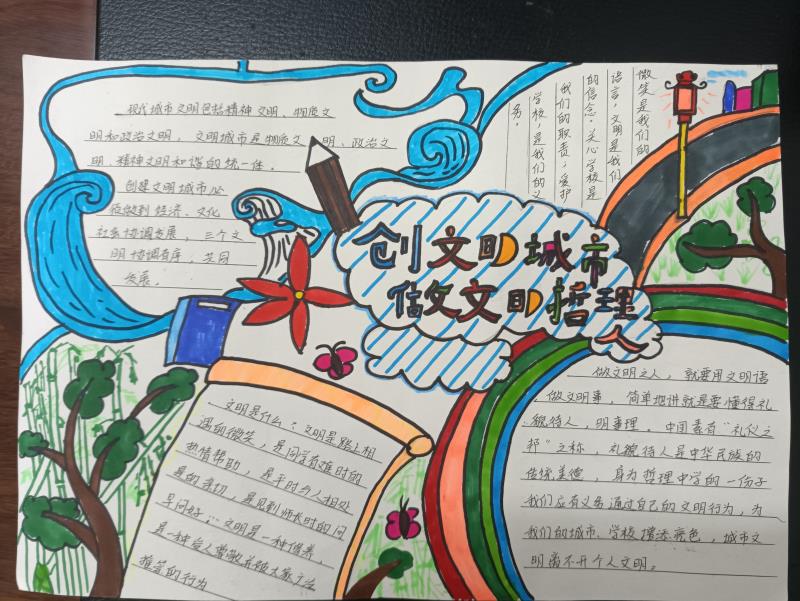 创文明城市
做文明哲理人
现代城市文明包括精神文明、物质文
明和政治文明，文明城市是物质文明、政治文
明、精神文明和谐的统一体。
创建文明城市必
须做到经济、文化
社会协调发展，三个文
明协调有序，共同
发展。
微笑是我们的
语言，文明是我们
的信念，关心学校是
我们的职责，爱护
学校，是我们的义
务。
文明是什么？文明是路上相
遇的微笑，是同学有难时的
热情帮助，是平时与人相处
是的亲切，是见到师长时的问
早问好…文明是一种修养，
是一种受人尊敬并被大家
推荐的行为
做文明之人，就要用文明语
，做文明事，简单地讲就是要懂得礼
貌待人，明事理。中国素有“礼仪之
邦”之称，礼貌待人是中华民族的
传统美德，身为哲理中学的一份子
我们应有义务通过自己的文明行为，为
我们的城市、学校增添亮色，城市文
明离不开个人文明。